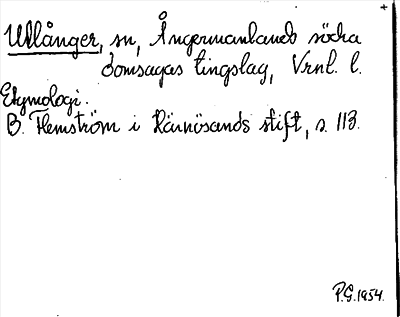 Ullånger, sn, Ångermanlands södra
domsagas tingslag, Vrnl. l.
Etymologi.
B. Flemström i Härnösands stift, s. 113.
P.G. 1954.